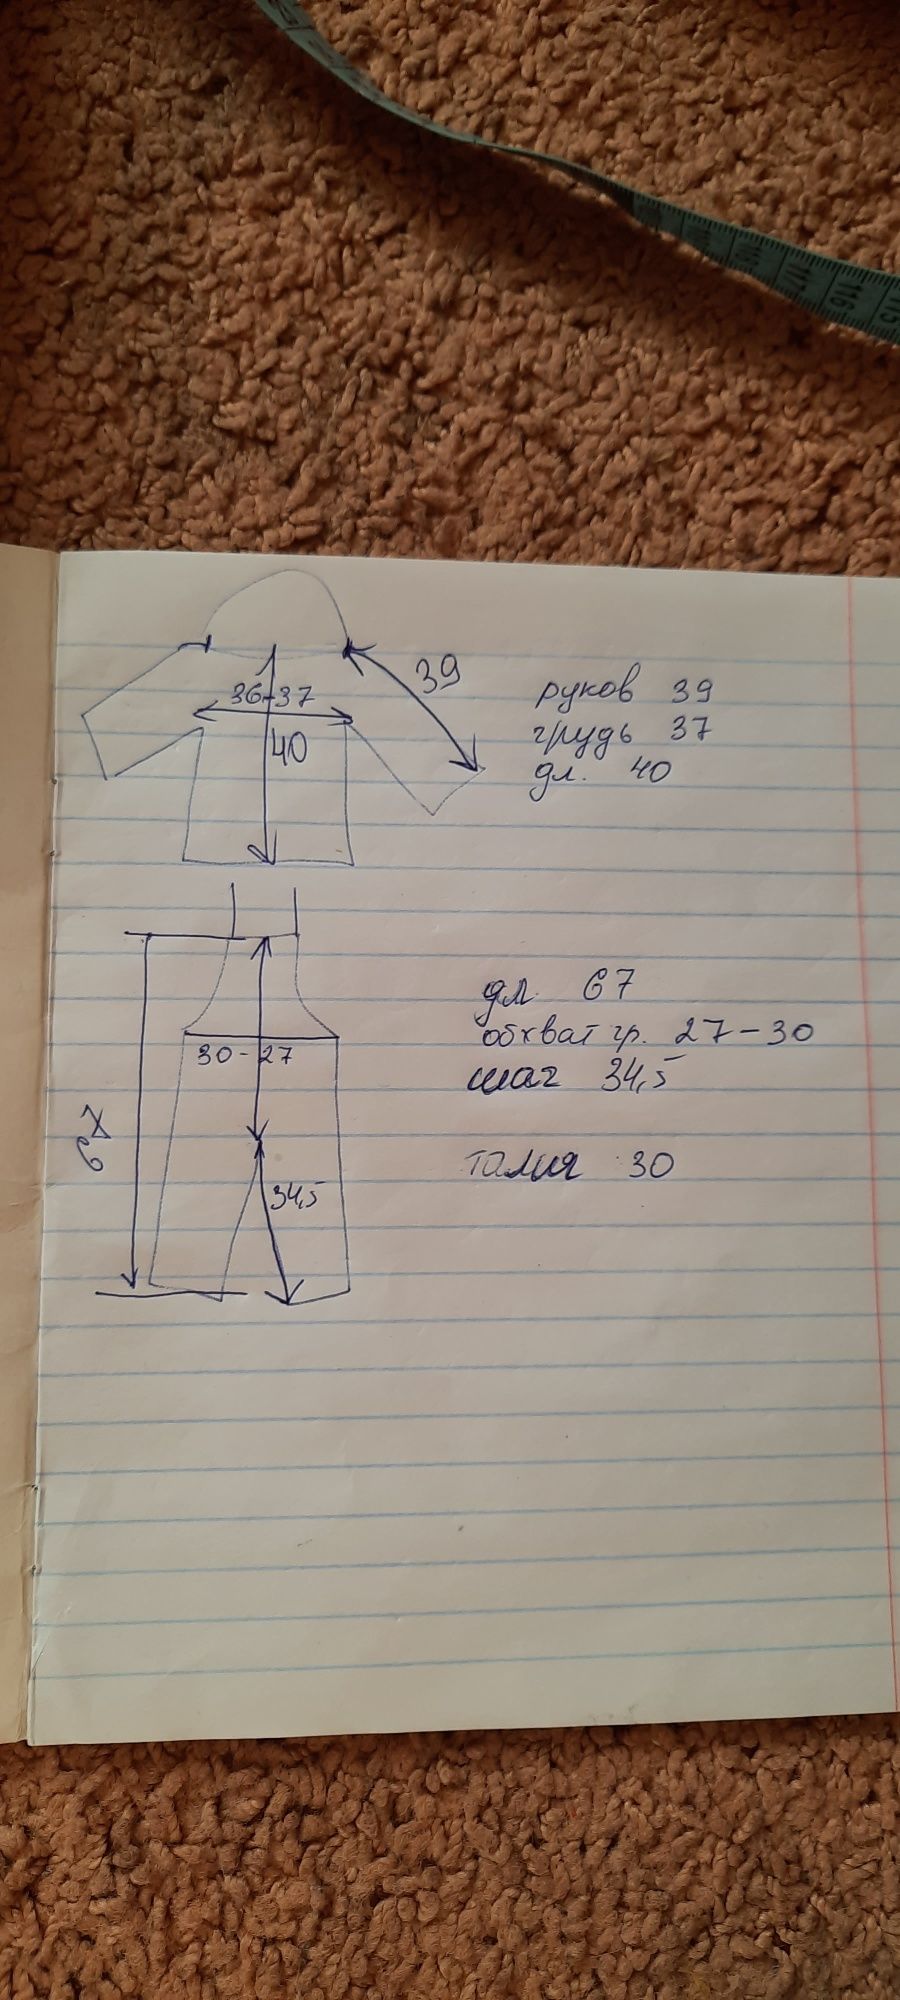 39
36-37
40
руков 39
грудь 37
дл. 40
30-27
67
34,5
дл. 67
обхват гр. 27-30
шаг 34,5
талия 30